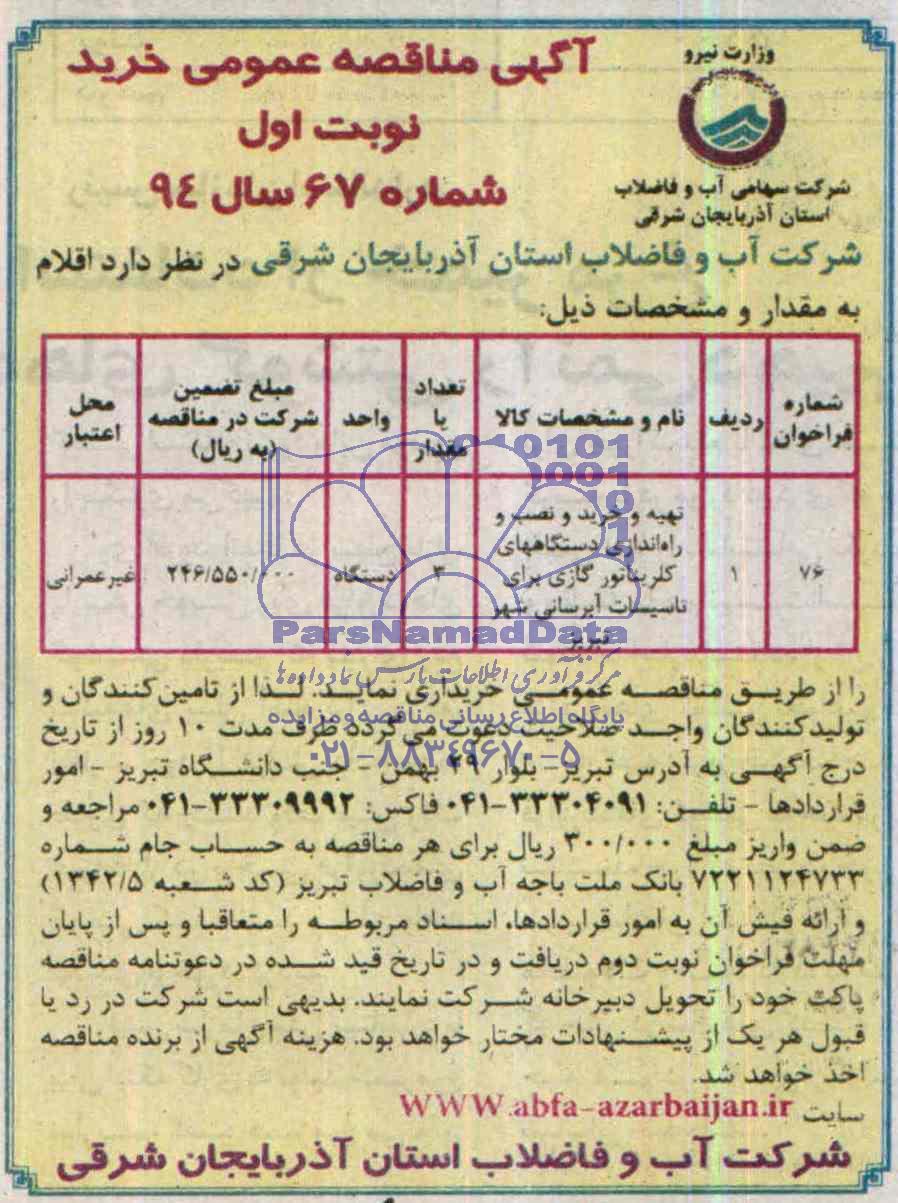 وزارت نیرو
شرکت سهامی آب و فاضلاب
استان آذربایجان شرقی
آگهی مناقصه عمومی خرید
نوبت اول
شماره ۶۷ سال ۹٤
شرکت آب و فاضلاب استان آذربایجان شرقی در نظر دارد اقلام
به مقدار و مشخصات ذیل:
شماره فراخوان | ردیف | نام و مشخصات کالا | تعداد یا مقدار | واحد | مبلغ تضمین شرکت در مناقصه (به ریال) | محل اعتبار
۷۶ | ۱ | تهیه و خرید و نصب و راه‌اندازی دستگاههای کلریناتور گازی برای تاسیسات آبرسانی شهر تبریز | ۳ | دستگاه | ۲۴۶/۵۵۰/۰۰۰ | غیرعمرانی
ParsNamadData
مرکز فرآوری اطلاعات پارس نماد داده ها
پایگاه اطلاع رسانی مناقصه و مزایده
۰۲۱-۸۸۳٤۹۶۷۰-۵
را از طریق مناقصه عمومی خریداری نماید. لذا از تامین‌کنندگان و
تولیدکنندگان واجد صلاحیت دعوت می گردد ظرف مدت ۱۰ روز از تاریخ
درج آگهی به آدرس تبریز- بلوار ۲۹ بهمن - جنب دانشگاه تبریز - امور
قراردادها - تلفن: ۳۳۳۰۴۰۹۱-۰۴۱ فاکس: ۳۳۳۰۹۹۹۲-۰۴۱ مراجعه و
ضمن واریز مبلغ ۳۰۰/۰۰۰ ریال برای هر مناقصه به حساب جام شماره
۷۲۲۱۱۲۴۷۳۳ بانک ملت باجه آب و فاضلاب تبریز (کد شعبه ۱۳۴۲/۵)
و ارائه فیش آن به امور قراردادها، اسناد مربوطه را متعاقبا و پس از پایان
مهلت فراخوان نوبت دوم دریافت و در تاریخ قید شده در دعوتنامه مناقصه
پاکت خود را تحویل دبیرخانه شرکت نمایند. بدیهی است شرکت در رد یا
قبول هر یک از پیشنهادات مختار خواهد بود. هزینه آگهی از برنده مناقصه
اخذ خواهد شد.
سایت WWW.abfa-azarbaijan.ir
شرکت آب و فاضلاب استان آذربایجان شرقی